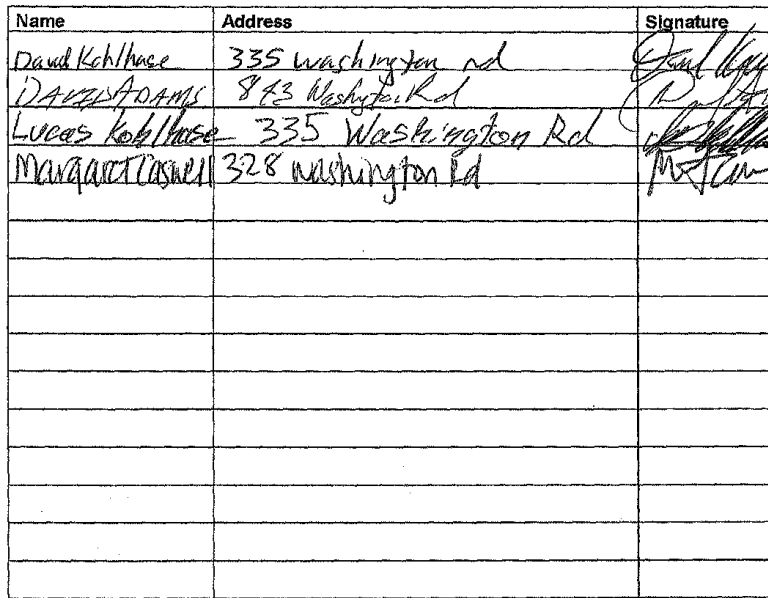 Name Address Signature
David Kohlhase 335 washington rd
DAVID ADAMS 843 Washington Rd
Lucas Kohlhase 335 Washington Rd
Margaret Caswell 328 washington Rd